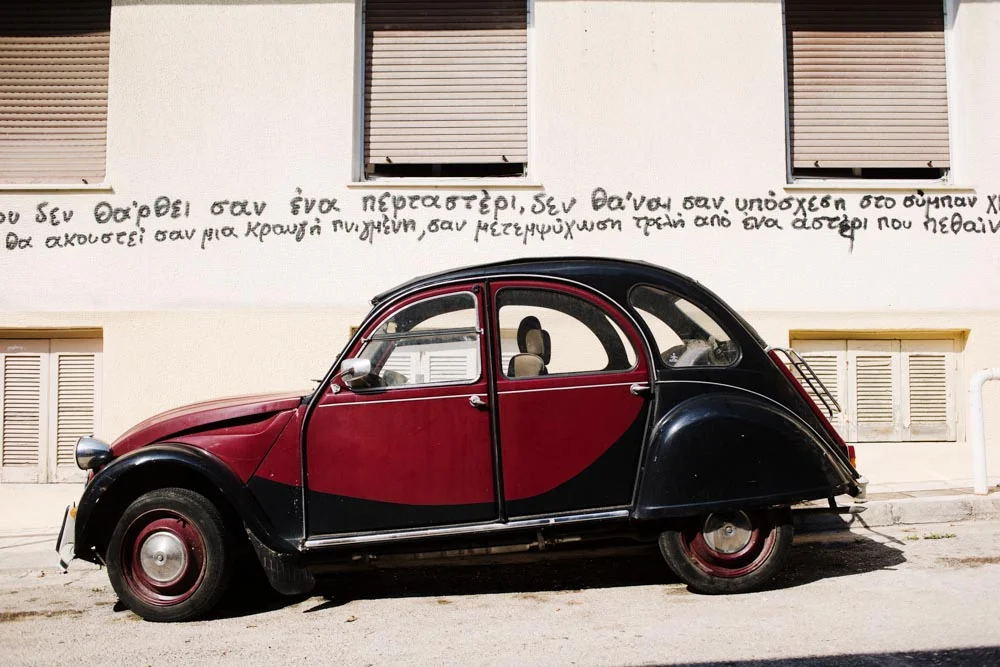 ου δεν θα'ρθει σαν ένα πέρταστέρι, δεν θα'ναι σαν υπόσχεση στο σύμπαν
θα ακουστεί σαν μια κραυγή πνιγμένη, σαν μετεμψύχωση τρελή από ένα αστέρι που πεθαίν